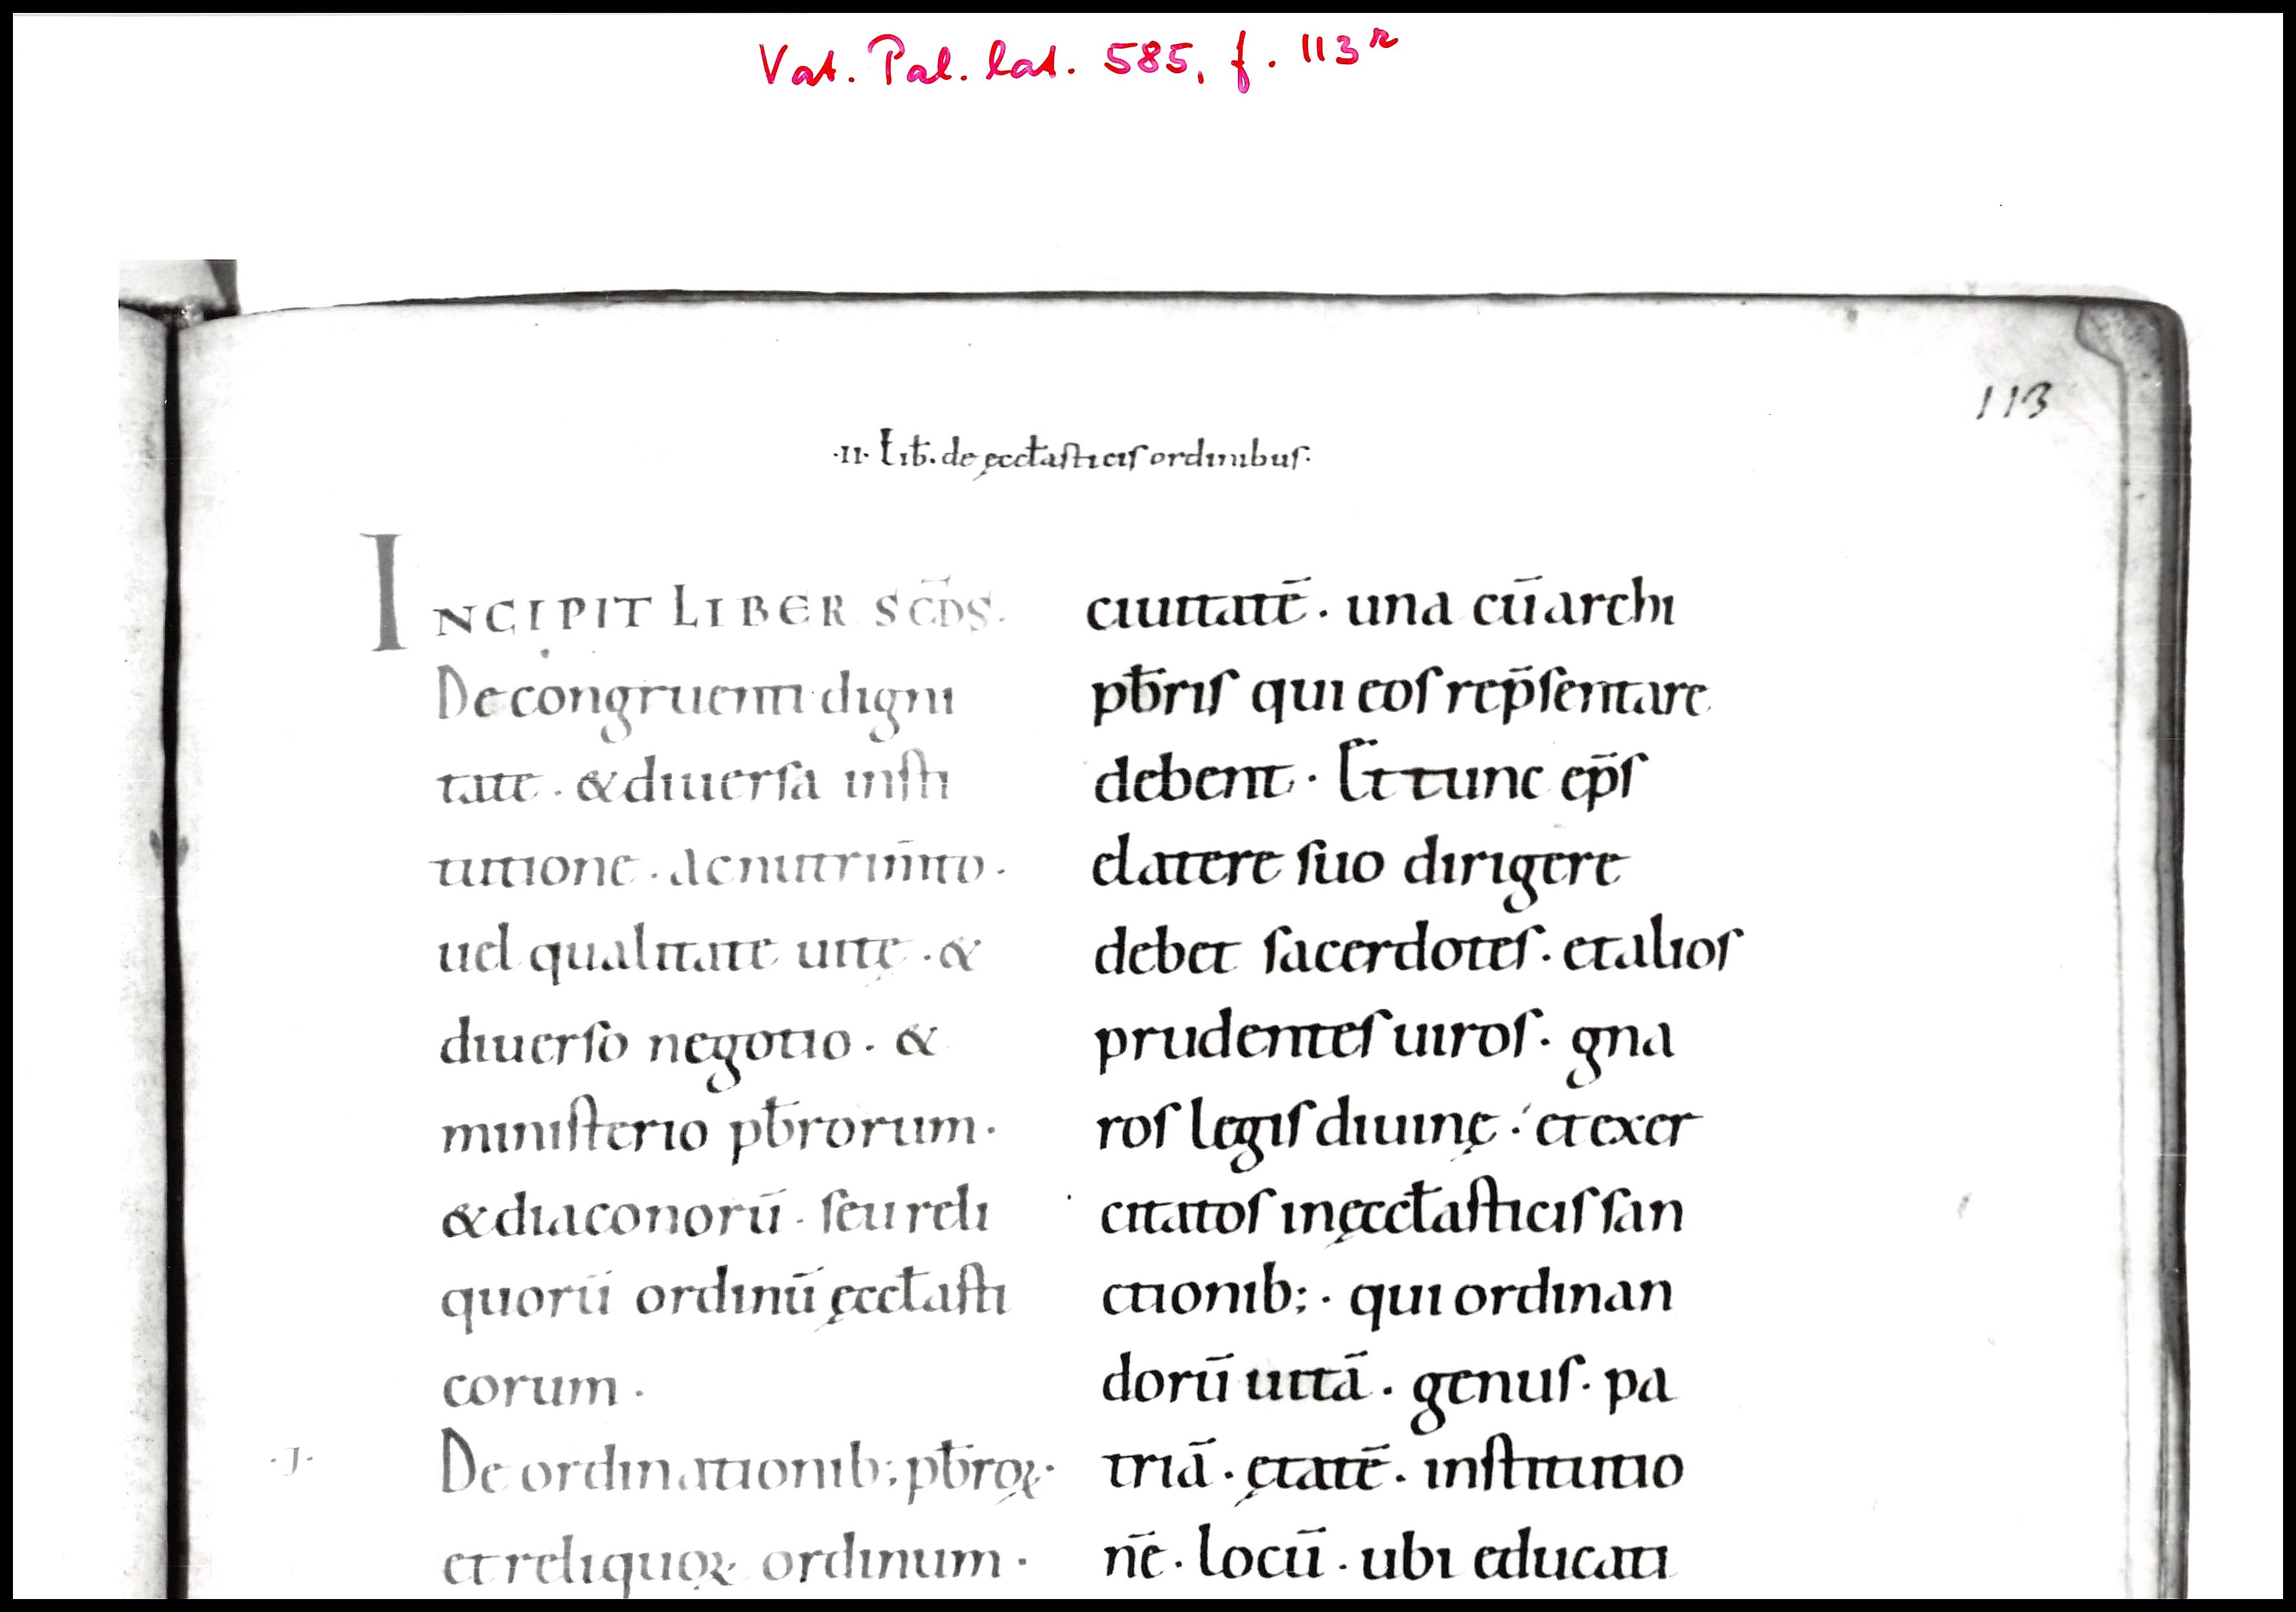 Vat. Pal. lat. 585, f. 113r
113
·II· Lib̄. de ęccl̄asticis ordinibus·
INCIPIT LIBER SCD̄S.
De congruenti digni
tate · & diuersa insti
tutione · ac nutrim̄to ·
uel qualitate uitę · &
diuerso negotio · &
ministerio pb̄rorum ·
& diaconorū · seu reli
quorū ordinū ęccl̄asti
corum ·
·I· De ordinationib; pb̄roꝝ·
et reliquoꝝ ordinum ·
ciuitatē · una cū archi
pb̄ris qui eos rep̄sentare
debent · Et tunc ep̄s
elatere suo dirigere
debet sacerdotes · et alios
prudentes uiros · gna
ros legis diuinę · et exer
citatos in ęccl̄asticis san
ctionib; · qui ordinan
dorū uitā · genus · pa
triā · ętatē · institutio
nē · locū · ubi educati